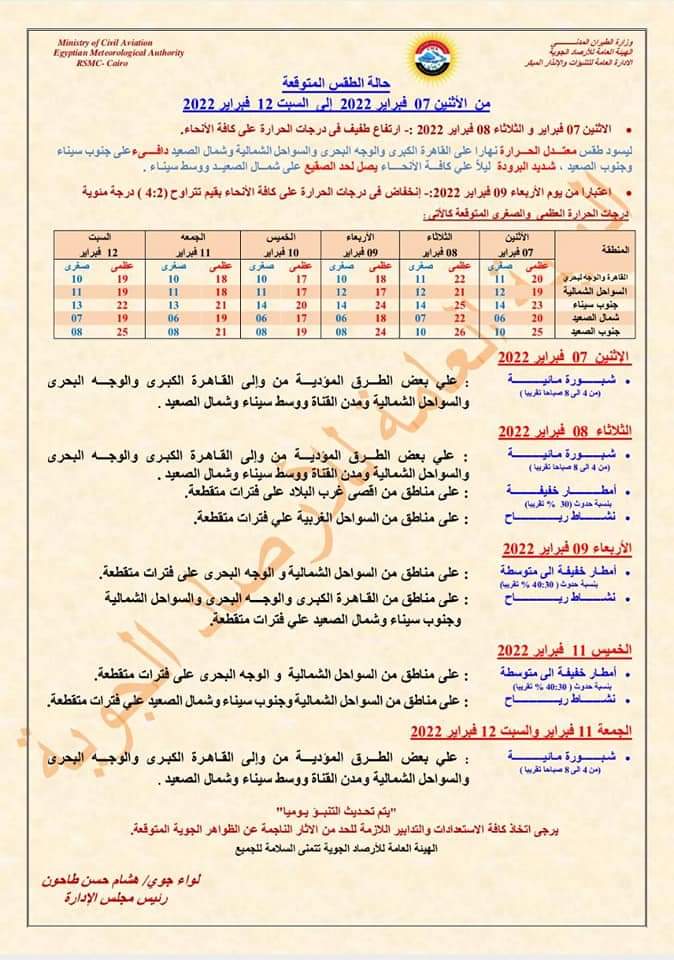 Ministry of Civil Aviation
Egyptian Meteorological Authority
RSMC- Cairo
وزارة الطيران المدنى
الهيئة العامة للأرصاد الجوية
الادارة العامة للتنبؤات والإنذار المبكر
حالة الطقس المتوقعة
من الأثنين 07 فبراير 2022 إلى السبت 12 فبراير 2022
• الاثنين 07 فبراير و الثلاثاء 08 فبراير 2022 :- ارتفاع طفيف فى درجات الحرارة على كافة الأنحاء.
ليسود طقس معتدل الحرارة نهارا على القاهرة الكبرى والوجه البحرى والسواحل الشمالية وشمال الصعيد دافىء على جنوب سيناء
وجنوب الصعيد ، شديد البرودة ليلاً علي كافة الأنحاء يصل لحد الصقيع على شمال الصعيد ووسط سيناء .
• اعتبارا من يوم الأربعاء 09 فبراير 2022:- إنخفاض فى درجات الحرارة على كافة الأنحاء بقيم تتراوح (4:2) درجة مئوية
درجات الحرارة العظمي والصغرى المتوقعة كالأتى:
المنطقة الأثنين الثلاثاء الأربعاء الخميس الجمعه السبت
07 فبراير 08 فبراير 09 فبراير 10 فبراير 11 فبراير 12 فبراير
عظمى صغرى عظمى صغرى عظمى صغرى عظمى صغرى عظمى صغرى عظمى صغرى
القاهرة والوجه لبحرى 20 11 22 11 18 10 17 10 18 10 19 10
السواحل الشمالية 19 12 21 12 17 12 17 11 18 11 19 11
جنوب سيناء 23 14 25 14 24 14 20 14 21 13 22 13
شمال الصعيد 20 06 22 07 18 06 17 06 19 06 19 07
جنوب الصعيد 25 10 26 10 24 08 19 08 21 08 25 08
الاثنين 07 فبراير 2022
• شبورة مائية : علي بعض الطرق المؤدية من وإلى القاهرة الكبرى والوجه البحرى
(من 4 الى 8 صباحا تقريبا ) والسواحل الشمالية ومدن القناة ووسط سيناء وشمال الصعيد .
الثلاثاء 08 فبراير 2022
• شبورة مائية : علي بعض الطرق المؤدية من وإلى القاهرة الكبرى والوجه البحرى
(من 4 الى 8 صباحا تقريبا ) والسواحل الشمالية ومدن القناة ووسط سيناء وشمال الصعيد .
• أمطار خفيفة : على مناطق من اقصى غرب البلاد على فترات متقطعة.
بنسبة حدوث (30 % تقريبا)
• نشاط رياح : على مناطق من السواحل الغربية علي فترات متقطعة.
الأربعاء 09 فبراير 2022
• أمطار خفيفة الى متوسطة : على مناطق من السواحل الشمالية و الوجه البحرى على فترات متقطعة.
بنسبة حدوث ( 40:30 % تقريبا)
• نشاط رياح : على مناطق من القاهرة الكبرى والوجه البحرى والسواحل الشمالية
وجنوب سيناء وشمال الصعيد علي فترات متقطعة.
الخميس 11 فبراير 2022
• أمطار خفيفة الى متوسطة : على مناطق من السواحل الشمالية و الوجه البحرى على فترات متقطعة.
بنسبة حدوث ( 40:30 % تقريبا)
• نشاط رياح : على مناطق من السواحل الشمالية وجنوب سيناء وشمال الصعيد علي فترات متقطعة.
الجمعة 11 فبراير والسبت 12 فبراير 2022
• شبورة مائية : علي بعض الطرق المؤدية من وإلى القاهرة الكبرى والوجه البحرى
(من 4 الى 8 صباحا تقريبا ) والسواحل الشمالية ومدن القناة ووسط سيناء وشمال الصعيد .
"يتم تحديث التنبؤ يوميا"
يرجى اتخاذ كافة الاستعدادات والتدابير اللازمة للحد من الاثار الناجمة عن الظواهر الجوية المتوقعة.
الهيئة العامة للأرصاد الجوية تتمنى السلامة للجميع
لواء جوي/ هشام حسن طاحون
رئيس مجلس الإدارة
الهيئة العامة للأرصاد الجوية